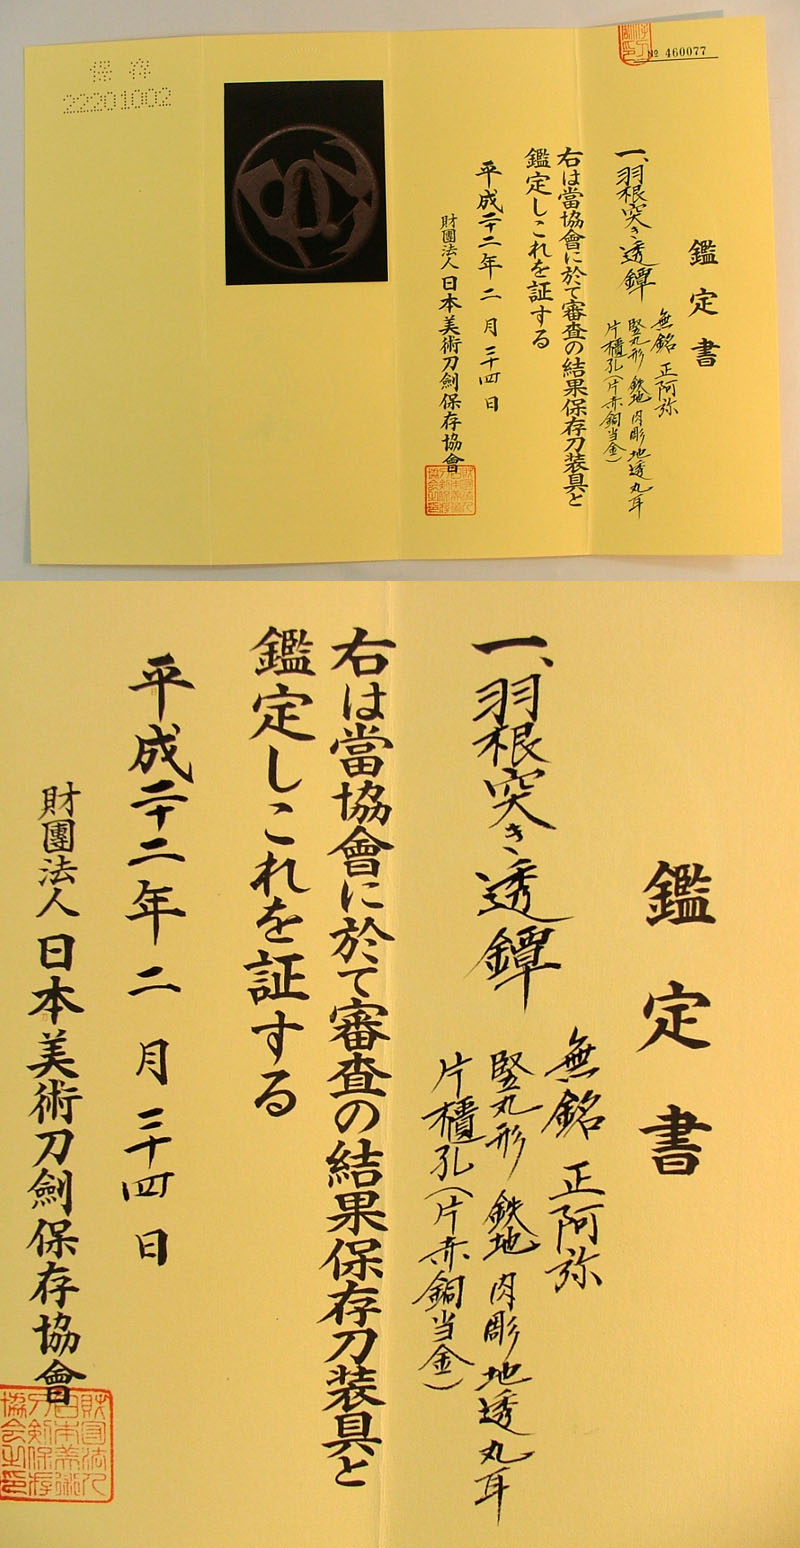 保存
22201002
№ 460077
鑑定書
一、羽根突き透鐔
無銘 正阿弥
竪丸形 鉄地 肉彫地透 丸耳
片櫃孔(片赤銅当金)
右は當協會に於て審査の結果保存刀装具と
鑑定しこれを証する
平成二十二年 二 月 二十四 日
財團法人 日本美術刀劍保存協會
鑑定書
一、羽根突き透鐔
無銘 正阿弥
竪丸形 鉄地 肉彫地透 丸耳
片櫃孔(片赤銅当金)
右は當協會に於て審査の結果保存刀装具と
鑑定しこれを証する
平成二十二年 二 月 二十四 日
財團法人 日本美術刀劍保存協會